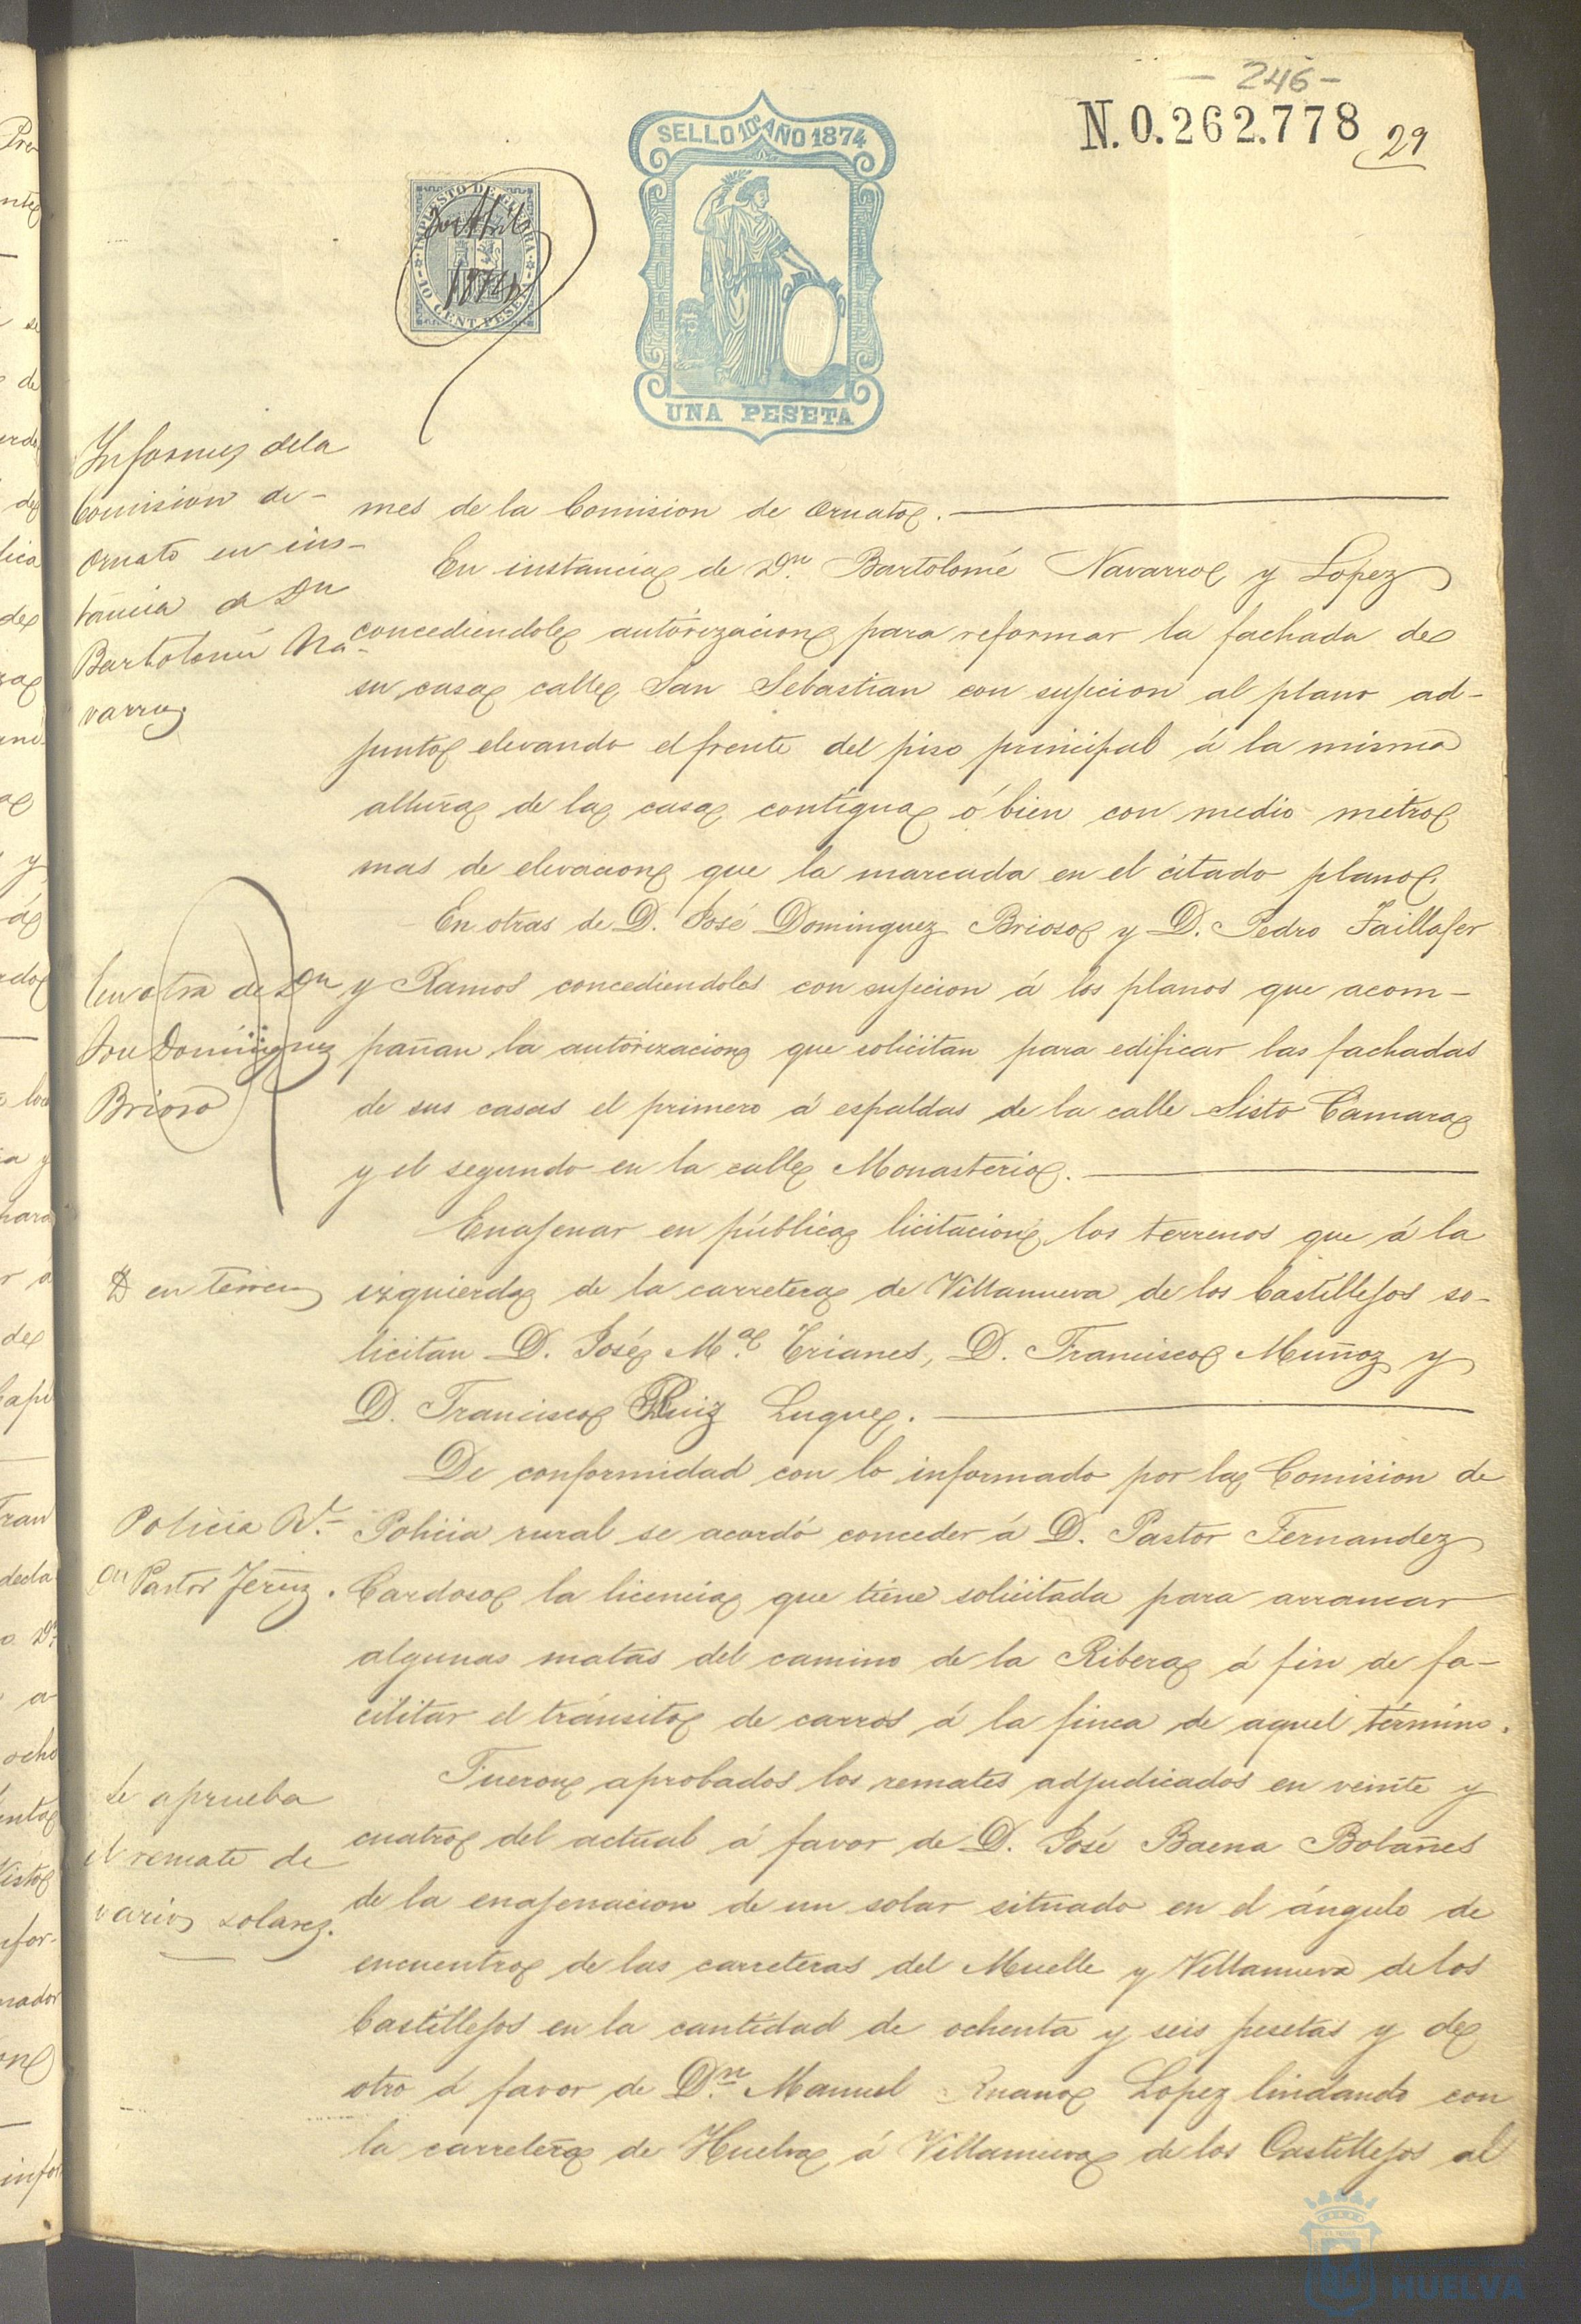 - 246 -
N. 0.262.778
29
SELLO 10º AÑO 1874
UNA PESETA
IMPUESTO DE GUERRA
10 CENT. PESETA
1874
Informes dela
Comision de
Ornato en ins-
tancia de Dn
Bartolomé Na-
varro
mes de la Comision de Ornato.
En instancia de Dn. Bartolomé Navarro y Lopez
concediendole autórizacion para reformar la fachada de
su casa calle San Sebastian con sujecion al plano ad-
junto elevando el frente del piso principal á la misma
altura de la casa contigua ó bien con medio metro
mas de elevacion que la marcada en el citado plano.
En otras de D. José Dominguez Brioso y D. Pedro Jaillafer
y Ramos concediendoles con sujecion á los planos que acom-
pañan la autorizacion que solicitan para edificar las fachadas
de sus casas el primero á espaldas de la calle Sisto Cámara
y el segundo en la calle Monasterio.
En otra de Dn
José Dominguez
Brioso
Enajenar en pública licitacion los terrenos que á la
izquierda de la carretera de Villanueva de los Castillejos so-
licitan D. José Mª. Trianes, D. Francisco Muñoz y
D. Francisco Ruiz Luque.
De conformidad con lo informado por la Comision de
Policia rural se acordó conceder á D. Pastor Fernandez
Cardoso la licencia que tiene solicitada para arrancar
algunas matas del camino de la Ribera á fin de fa-
cilitar el tránsito de carros á la finca de aquel término.
Policia R.l
Dn Pastor Ferñz.
Fueron aprobados los remates adjudicados en veinte y
cuatro del actual á favor de D. José Baena Bolañes
de la enajenacion de un solar situado en el ángulo de
encuentro de las carreteras del Muelle y Villanueva de los
Castillejos en la cantidad de ochenta y seis pesetas y de
otro á favor de Dn. Manuel Ruano Lopez lindando con
la carretera de Huelva á Villanueva de los Castillejos al
Se aprueba
el remate de
varios solares.
HUELVA